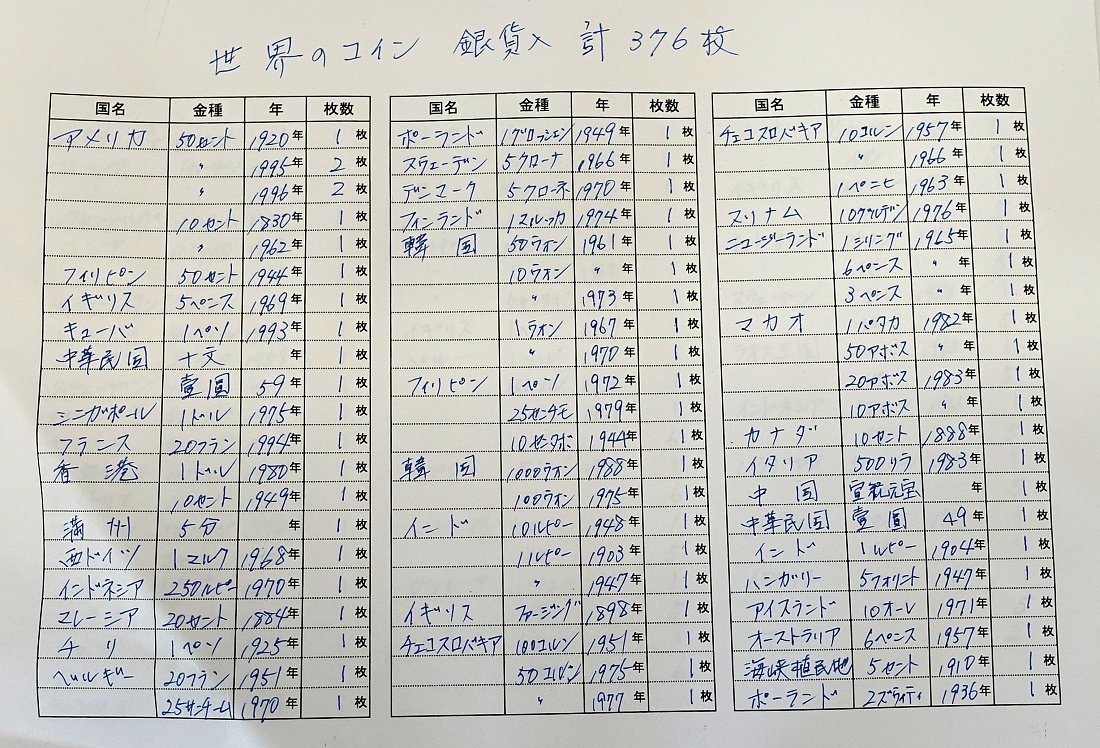 世界のコイン 銀貨入 計376枚
国名 金種 年 枚数
アメリカ 50セント 1920年 1枚
〃 1995年 2枚
〃 1996年 2枚
10セント 1830年 1枚
〃 1962年 1枚
フィリピン 50セント 1944年 1枚
イギリス 5ペンス 1969年 1枚
キューバ 1ペソ 1993年 1枚
中華民国 十文 年 1枚
壹圓 59年 1枚
シンガポール 1ドル 1975年 1枚
フランス 20フラン 1994年 1枚
香港 1ドル 1980年 1枚
10セント 1949年 1枚
満州 5分 年 1枚
西ドイツ 1マルク 1968年 1枚
インドネシア 250ルピー 1970年 1枚
マレーシア 20セント 1884年 1枚
チリ 1ペソ 1925年 1枚
ベルギー 20フラン 1951年 1枚
25サンチーム 1970年 1枚
国名 金種 年 枚数
ポーランド 1グロッシェン 1949年 1枚
スウェーデン 5クローナ 1966年 1枚
デンマーク 5クローネ 1970年 1枚
フィンランド 1マルッカ 1974年 1枚
韓国 50ウォン 1961年 1枚
10ウォン 〃年 1枚
〃 1973年 1枚
1ウォン 1967年 1枚
〃 1970年 1枚
フィリピン 1ペソ 1972年 1枚
25センチモ 1979年 1枚
10センタボ 1944年 1枚
韓国 1000ウォン 1988年 1枚
100ウォン 1975年 1枚
インド 10ルピー 1948年 1枚
1ルピー 1903年 1枚
〃 1947年 1枚
イギリス ファージング 1898年 1枚
チェコスロバキア 100コルン 1951年 1枚
50コルン 1975年 1枚
〃 1977年 1枚
国名 金種 年 枚数
チェコスロバキア 10コルン 1957年 1枚
〃 1966年 1枚
1ペニヒ 1963年 1枚
スリナム 10グルデン 1976年 1枚
ニュージーランド 1シリング 1965年 1枚
6ペンス 〃年 1枚
3ペンス 〃年 1枚
マカオ 1パタカ 1982年 1枚
50アボス 〃年 1枚
20アボス 1983年 1枚
10アボス 〃年 1枚
カナダ 10セント 1888年 1枚
イタリア 500リラ 1983年 1枚
中国 宣統元宝 年 1枚
中華民国 壹圓 49年 1枚
インド 1ルピー 1904年 1枚
ハンガリー 5フォリント 1947年 1枚
アイスランド 10オーレ 1971年 1枚
オーストラリア 6ペンス 1957年 1枚
海峡植民地 5セント 1910年 1枚
ポーランド 2ズウォティ 1936年 1枚